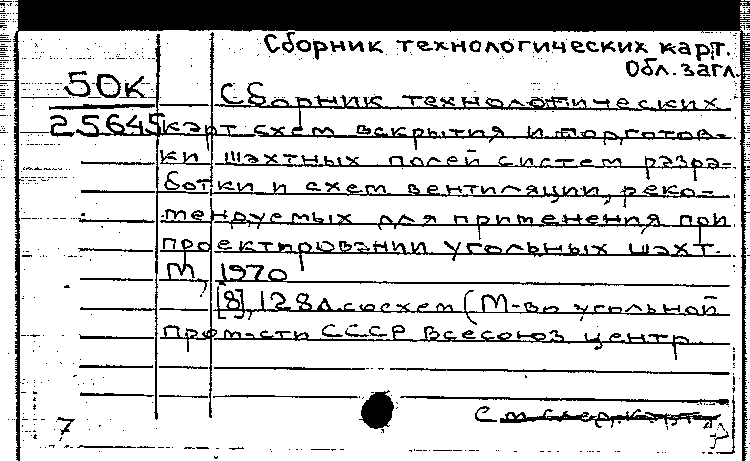 Сборник технологических карт.
Обл. загл.
50к
25645
Сборник технологических
карт схем вскрытия и подготов-
ки шахтных полей систем разра-
ботки и схем вентиляции, реко-
мендуемых для применения при
проектировании угольных шахт.
М, 1970
[8], 128л. со схем (М-во угольной
пром-сти СССР Всесоюз центр
См след. карту
7